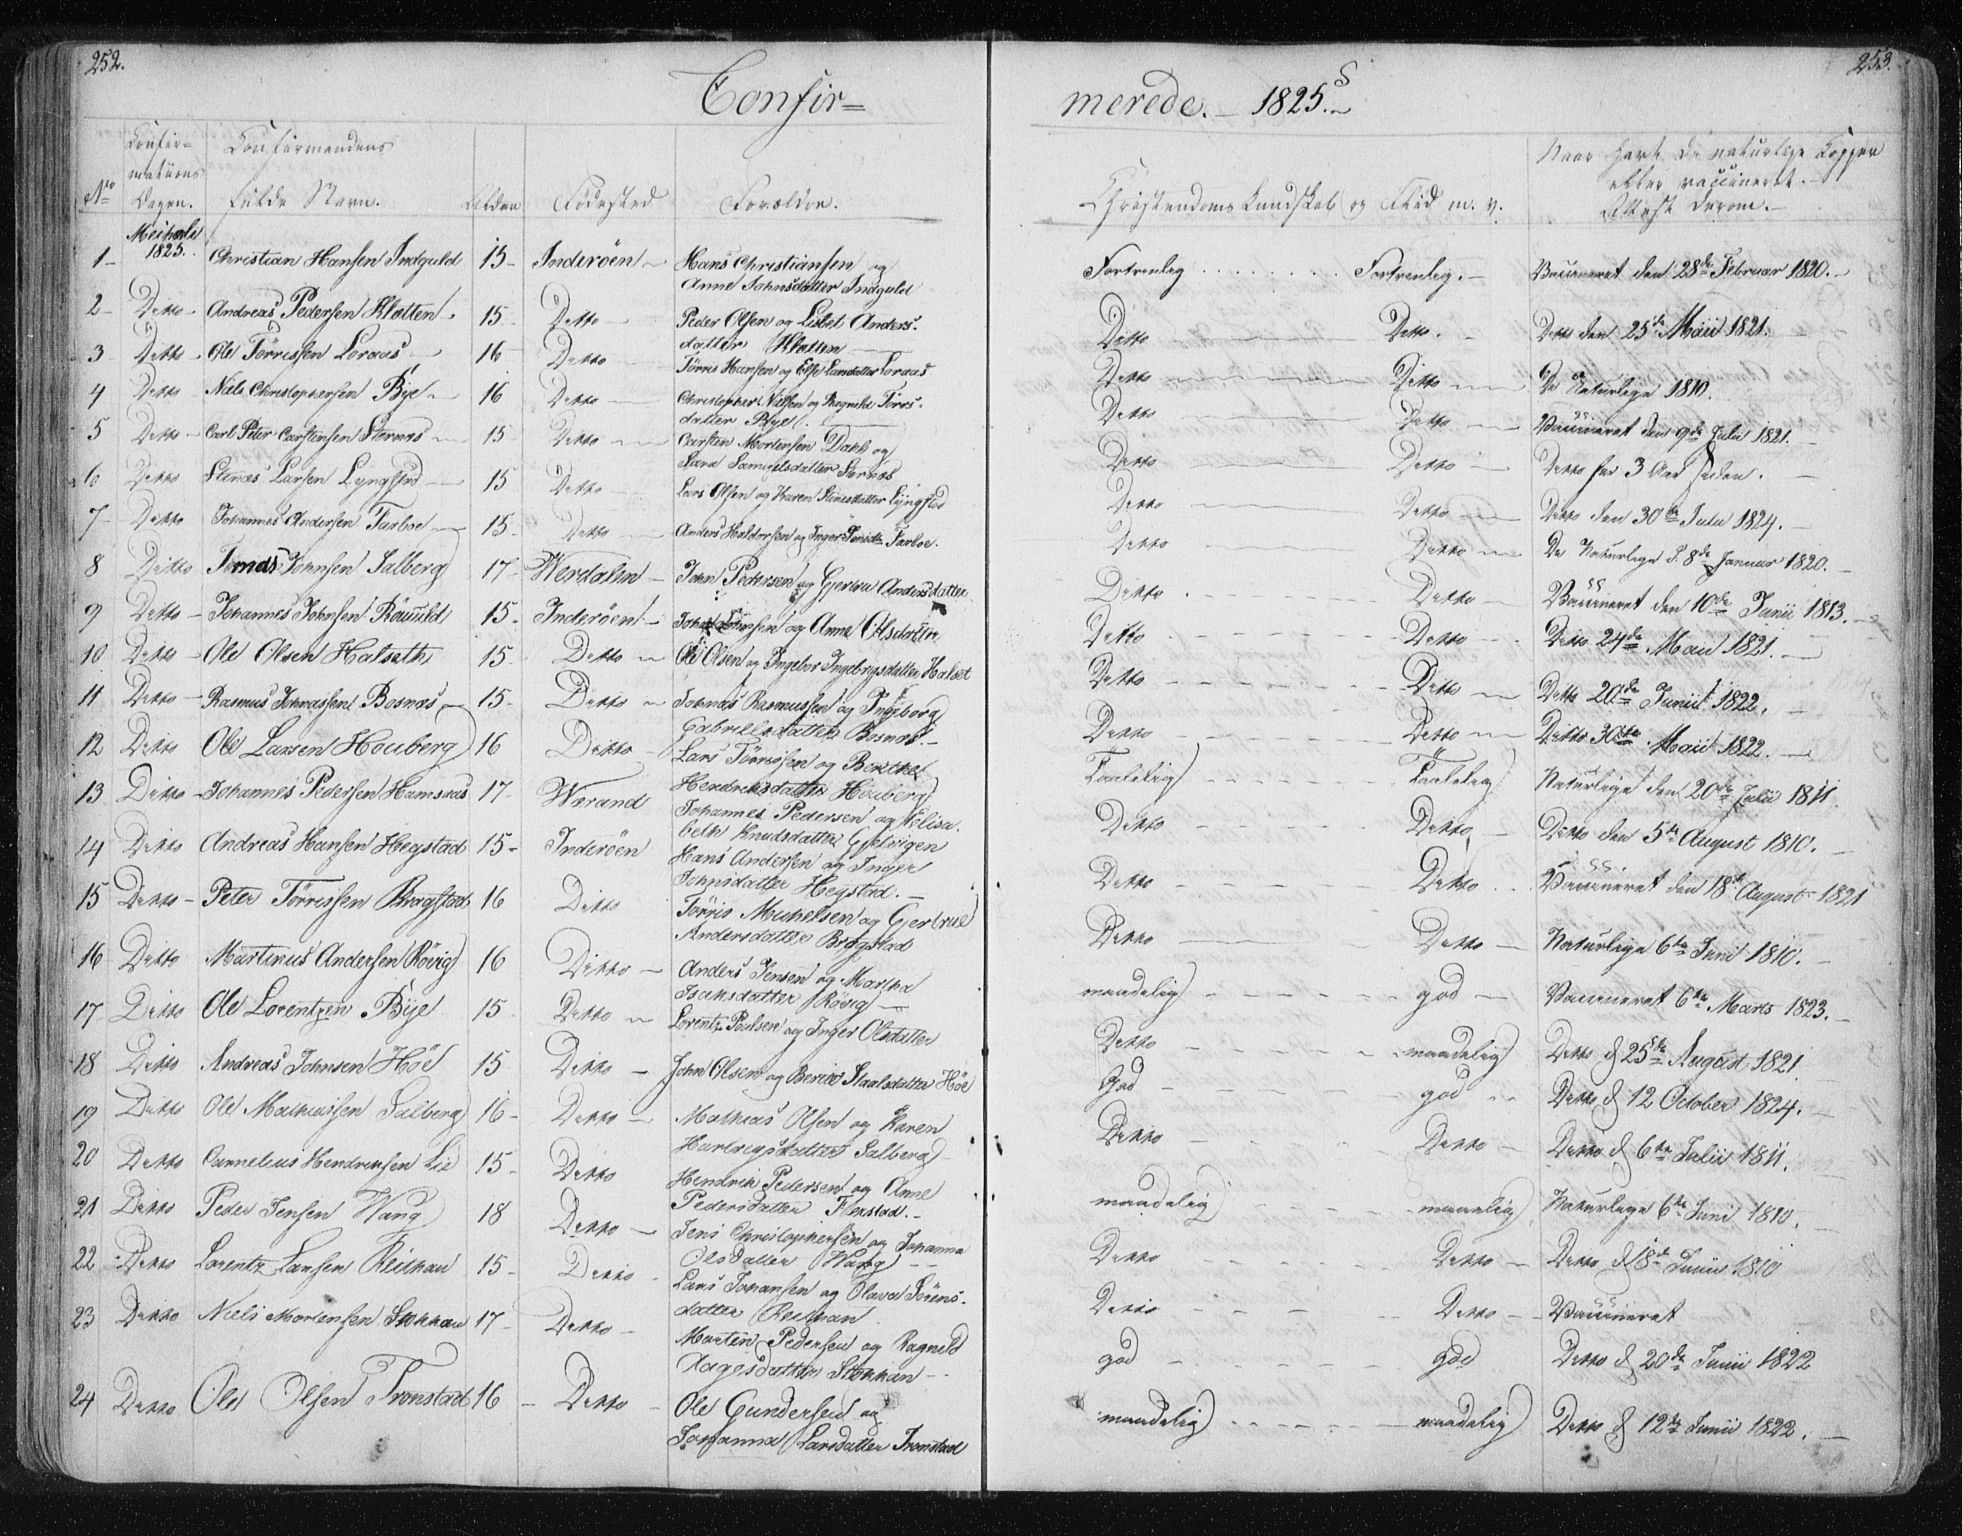 252.
253.
Confir=
merede. – 1825.
No
Confir=
mations
Dagen.
Confirmandens
fulde Navn.
Alder
Fødested
Forældre.
Christendoms Kundskab og Flid m. v.
Naar havt de naturlige Kopper
eller vaccineret.
Attest derom.
1825.
1 Christian Hansen Indguld 15 Inderöen Hans Christiansen og Fortrenlig Fortrenlig. Vaccineret den 28de Februar 1820.
Anne Johnsdatter Indguld
2 Ditto Andreas Pedersen Kletten 15 Ditto Peder Olsen og Lisbet Anders- Ditto Ditto. Ditto den 25de Maii 1821.
datter Kletten
3 Ditto Ole Törrissen Loraas 16 Ditto Törris Hansen og Else Loraas Ditto Ditto De Naturlige 1810.
4 Ditto Niels Christophersen Bye 16 Ditto Christopher Nielsen og Törres- Ditto Ditto Vaccineret den 9de Julii 1821.
datter Bye
5 Ditto Carl Peter Carstensen 15 Ditto Carsten Mortensen og Ditto Ditto Ditto for 3 Aar siden.
Samuelsdatter
6 Ditto Larsen Lyngstad 15 Ditto Lars Olsen og Karen Lyngstad Ditto Ditto Ditto den 30te 1824.
7 Ditto Johannes Andersen 15 Ditto Anders Haldorsen og Inger Ditto Ditto De Naturlige d. 8de Januar 1820.
8 Ditto Johnsen Salberg 17 Werdalen John Pedersen og Gjertru Andersdatter Ditto Ditto Vaccineret den 10de Junii 1813.
9 Ditto Johannes Johnsen 15 Inderöen og Anne Olsdatter Ditto Ditto Ditto 24de Maii 1821.
10 Ditto Ole Olsen Halseth 15 Ditto Ole Olsen og Ingebor Ingebrigsdatter Halset Ditto Ditto Ditto 20de Junii 1822.
11 Ditto Rasmus Johnassen Bosnæs 15 Ditto Johnas Rasmussen og Ingeborg Ditto Ditto Ditto 30te Maii 1822.
Gabrielsdatter Bosnæs.
12 Ditto Ole Larsen Houberg 16 Ditto Lars Törrissen og Berthe Taalelig Taalelig Naturlige den 20de Julii 1811.
Hendriksdatter Houberg
13 Ditto Johannes Pedersen Hamsaas 17 Werand Johannes Pedersen og Elisa- Ditto Ditto Ditto den 5te August 1810.
beth Knudsdatter
14 Ditto Andreas Hansen Hegstad 15 Inderöen Hans Andersen og Inger Ditto Ditto Vaccineret den 18de August 1821
Johnsdatter Hegstad.
15 Ditto Peter Törrissen Bragstad 16 Ditto Törris Michelsen og Gjertrue Ditto Ditto Naturlige 6te Juni 1810.
Andersdatter Bragstad
16 Ditto Martinus Andersen Rövig 16 Ditto Anders Jensen og Martha maadelig god Vaccineret 6te Marts 1823.
Isaksdatter Rövig
17 Ditto Ole Lorentzen Bye 15 Ditto Lorentz Poulsen og Inger Olsdatter Ditto maadelig Ditto d 25de August 1821.
18 Ditto Andreas Johnsen Höe 15 Ditto John Olsen og Berit Höe God god Ditto d 12 October 1824.
19 Ditto Ole Mathiassen Salberg 16 Ditto Mathias Olsen og Karen Ditto Ditto Ditto d 6te Julii 1811.
Hartvigsdatter Salberg
20 Ditto Cornelius Hendriksen Lie 15 Ditto Hendrik Pedersen og Anne maadelig maadelig Naturlige 6te Juni 1810.
Pedersdatter Flexstad.
21 Ditto Peder Jensen Wang 18 Ditto Jens Christophersen og Johanna Ditto Ditto Ditto d 18de Junii 1810
Olsdatter Wang
22 Ditto Lorentz Larsen Reithan 15 Ditto Lars Johansen og Olava Sörens- Ditto Ditto Vaccineret
datter Reithan
23 Ditto Niels Mortensen Stokkan 17 Ditto Morten Pedersen og Ragnild god god Ditto d 20de Junii 1822
Aagesdatter Stokkan
24 Ditto Ole Olsen Tronstad 16 Ditto Ole Gundersen og maadelig maadelig Ditto d 12te Junii 1822.
Johanna Larsdatter Tronstad